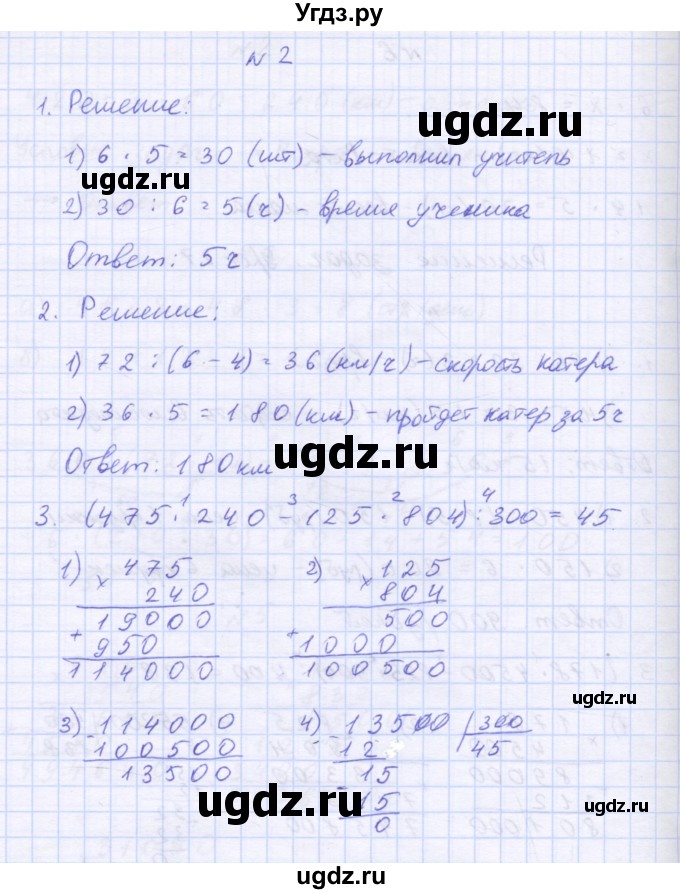 Угдз.ру
N 2
1. Решение:
ugdz.ru
1) 6 · 5 = 30 (шт) – выполнил учитель
ugdz.ru
2) 30 : 6 = 5 (ч) – время ученика
ugdz.ru
Ответ: 5 ч
2. Решение:
ugdz.ru
1) 72 : (6 – 4) = 36 (км/ч) – скорость катера
2) 36 · 5 = 180 (км) – пройдет катер за 5 ч
ugdz.ru
Ответ: 180 км
ugdz.ru
1 3 2 4
3. (475 · 240 – 125 · 804) : 300 = 45
1) × 475 2) × 125
240 804
19000 500
+ 950 + 1000
114000 100500
ugdz.ru
ugdz.ru
3) - 114000 4) - 13500 | 300
100500 12 45
13500 15
- 15
0
ugdz.ru
ugdz.ru
ugdz.ru